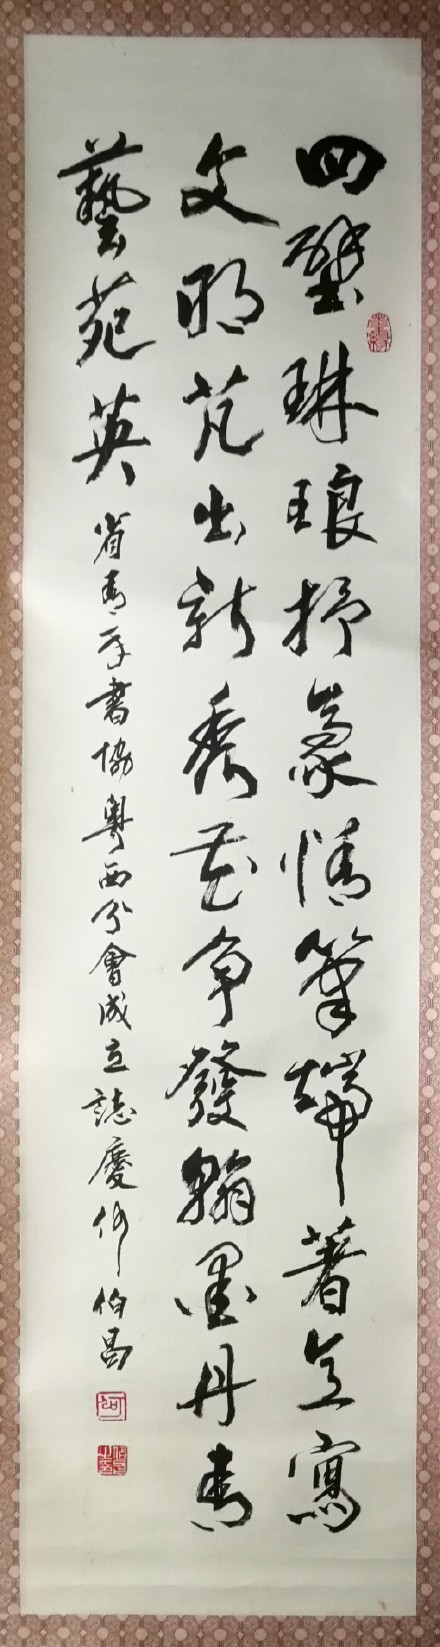 四壁琳琅抒豪情筆端著意寫
文明出新秀花争發翰墨丹青
藝苑英 省青年書協粵西分會成立誌慶 何伯昌